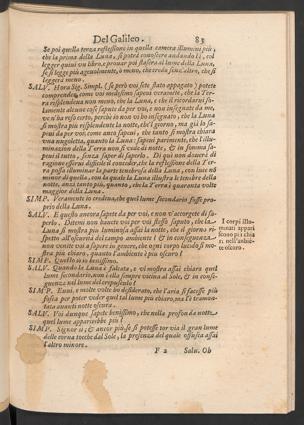 Del Galileo. 83
Se poi quella terza reflessione in quella camera illumini più,
che la prima della Luna, si potrà conoscere andando lì, col
legger quivi un libro, e provar poi stasera al lume della Luna,
se si legge più agevolmente, ò meno, che credo senz'altro, che si
leggerà meno.
SALV. Hora Sig. Simpl. (se però voi sete stato appagato) potete
comprender, come voi medesimo sapevi veramente, che la Ter-
ra risplendeva non meno, che la Luna, e che il ricordarvi so-
lamente alcune cose sapute da per voi, e non insegnate da me,
v'n'ha reso certo, perche io non vi ho insegnato, che la Luna
si mostra più risplendente la notte, che'l giorno, ma già lo sa-
pevi da per voi, come anco sapevi, che tanto si mostra chiara
vna nugoletta, quanto la Luna: sapevi parimente, che l'illumi-
nazione della Terra non si vede di notte, & in somma sa-
pevi il tutto, senza saper di saperlo. Di quì non doverà di
ragione esservi difficile il conceder, che la reflessione della Ter-
ra possa illuminar la parte tenebrosa della Luna, con luce nõ
minor di quella, con la quale la Luna illustra le tenebre della
notte, anzi tanto più, quanto, che la Terra è quaranta volte
maggior della Luna.
SIMP. Veramente io credeva, che quel lume secondario fusse pro-
prio della Luna.
SALV. E questo ancora sapete da per voi, e non v'accorgete di sa-
perlo. Ditemi non havete voi per voi stesso saputo, che la
Luna si mostra più luminosa assai la notte, che il giorno ri-
spetto all'oscurità del campo ambiente? & in conseguenza
non venite voi a sapere in genere, che ogni corpo lucido si mo-
stra più chiaro, quanto l'ambiente è più oscuro?
I corpi illu-
minati appari
scono più chia
ri nell'ambiẽ-
te oscuro.
SIMP. Questo sò io benissimo.
SALV. Quando la Luna è falcata, e vi mostra assai chiaro quel
lume secondario, non è ella sempre vicina al Sole, & in con-
seguenza nel lume del crepuscolo?
SIMP. Evvi, e molte volte ho desiderato, che l'aria si facesse più
fosca per poter veder quel tal lume più chiaro, ma l'è tramon-
tata avanti notte oscura.
SALV. Voi dunque sapete benissimo, che nella profonda notte
quel lume apparirebbe più?
SIMP. Signor sì; & ancor più se si potesse tor via il gran lume
delle corna tocche dal Sole, la presenza del quale offusca assai
l'altro minore.
F 2 Salu. Oh